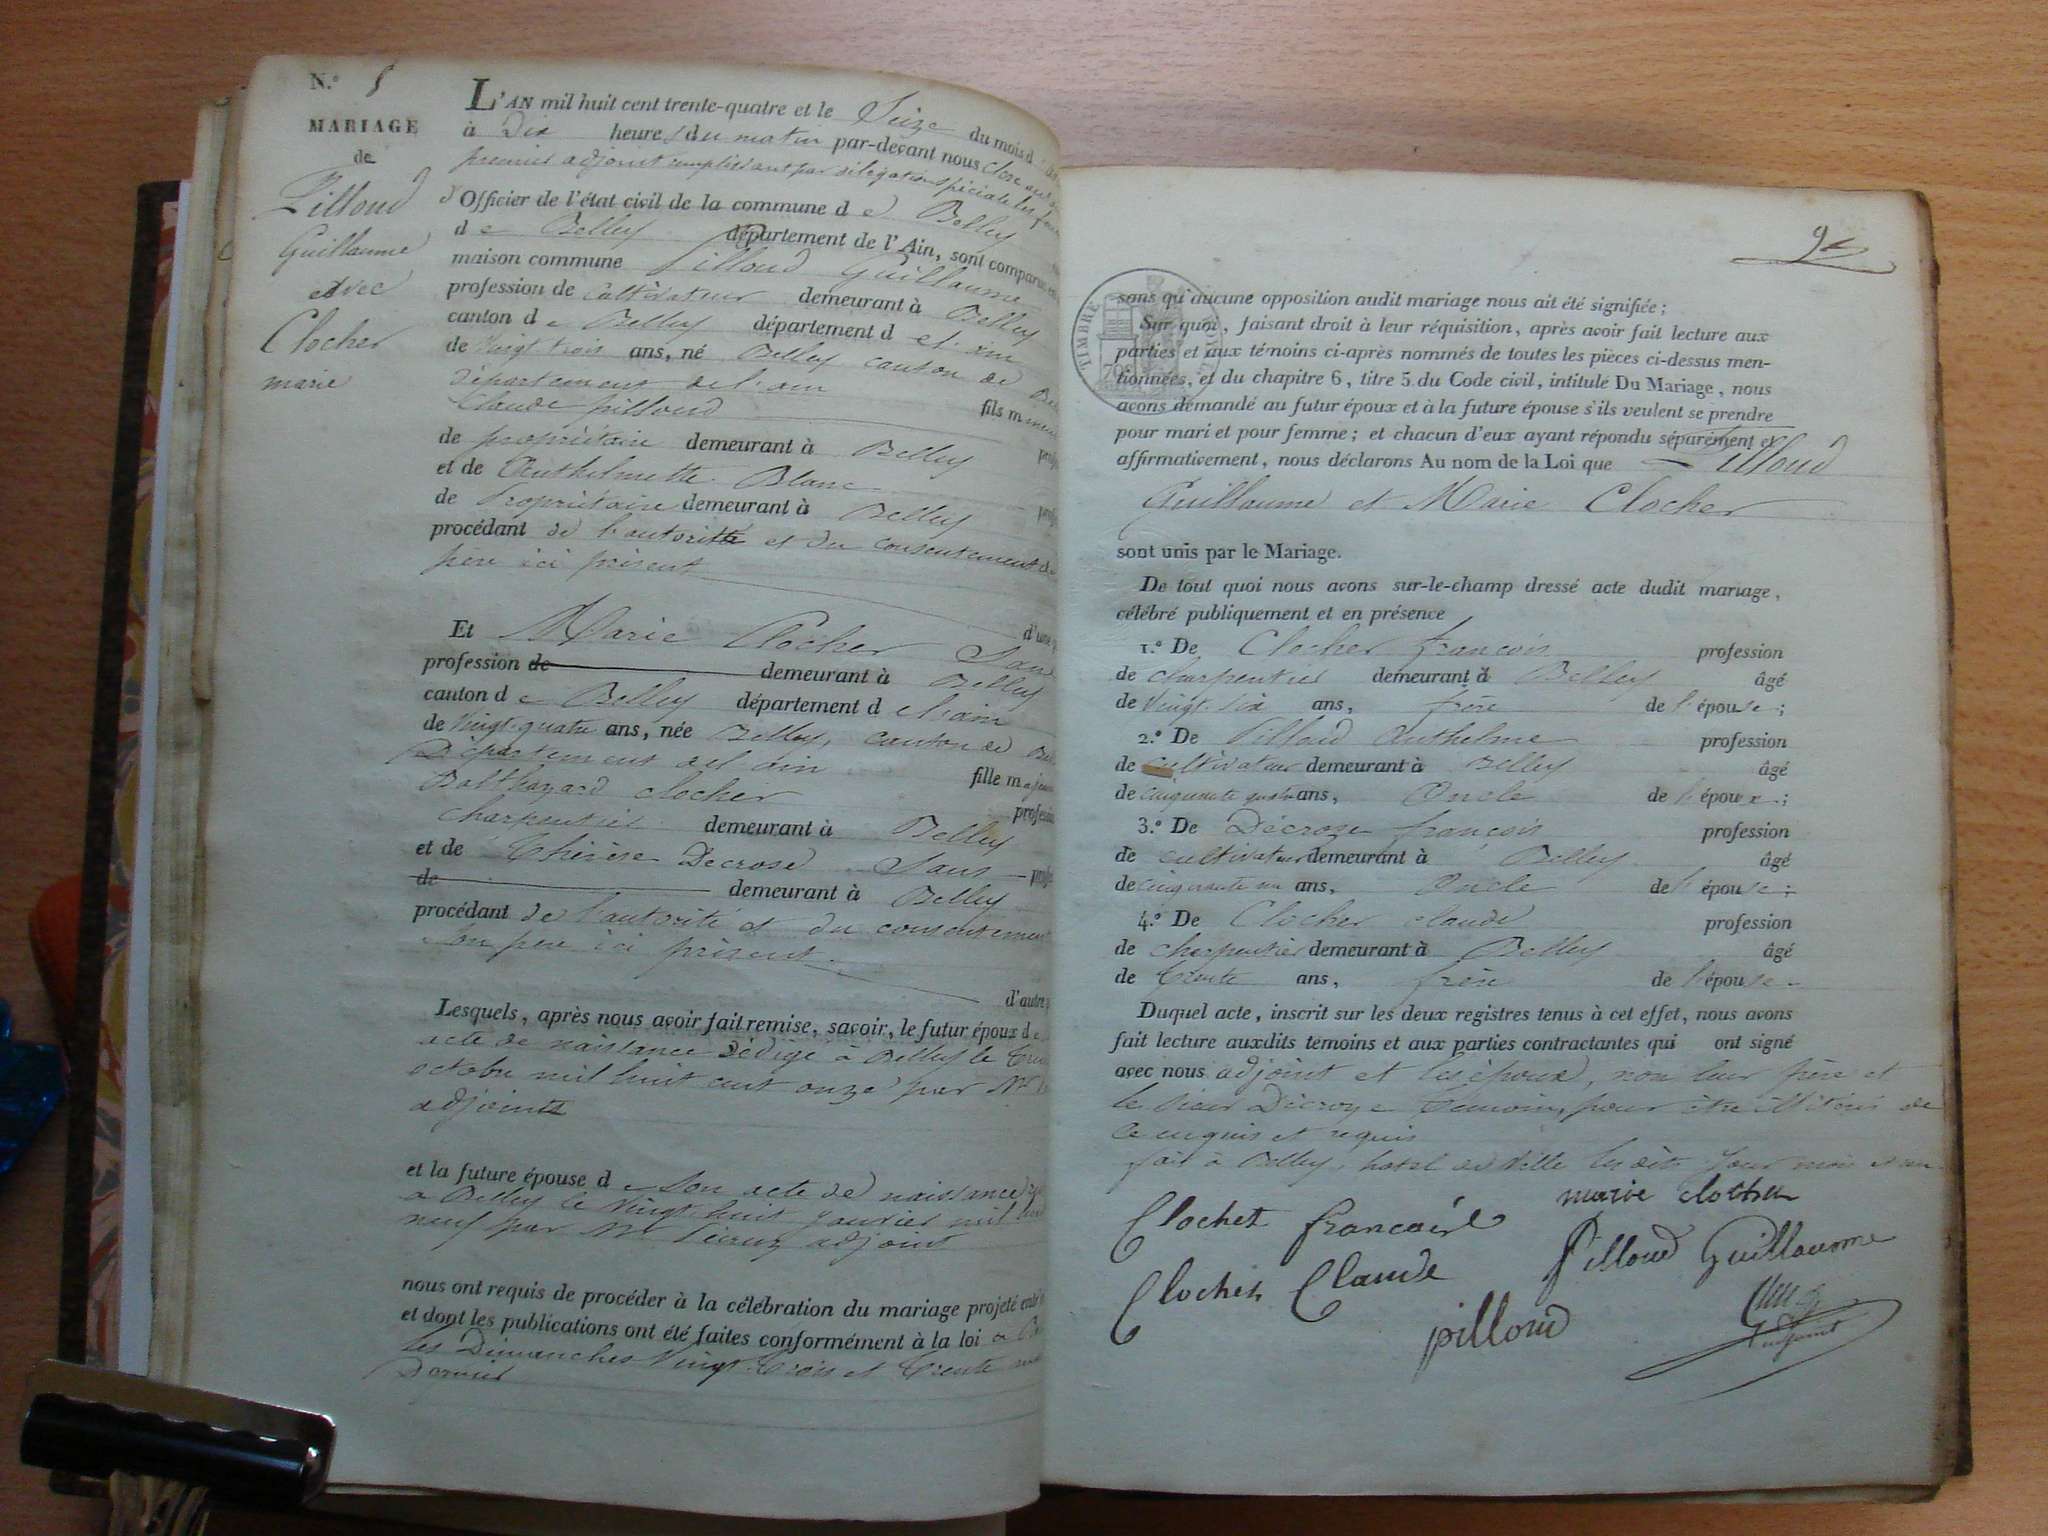 N.º 8
MARIAGE
de
Pilloud
Guillaume
avec
Clocher
marie
L'AN mil huit cent trente-quatre et le Seize du mois d
à Dix heures du matin par-devant nous
premier adjoint remplissant par délégation spéciale les
d'Officier de l'état civil de la commune d e Belley
d e Belley département de l'Ain, sont comparus en
maison commune Pilloud Guillaume
profession de Cultivateur demeurant à Belley
canton d e Belley département d e l'ain
de Vingt trois ans, né Belley canton de
département de l'ain fils mineur
Claude pilloud
de propriétaire demeurant à Belley
et de Anthelmette Blanc
de Propriétaire demeurant à Belley
procédant de l'autorité et du consentement de
père ici présent
d'une
Et Marie Clocher Sans
profession de demeurant à Belley
canton d e Belley département d e l'ain
de Vingt-quatre ans, née Belley, canton de
Département del'ain fille majeure
Balthazard Clocher profession
Charpentier demeurant à Belley
et de Thérèse Décrose Sans
de demeurant à Belley
procédant de l'autorité et du consentement
son père ici présent
d'autre
Lesquels, après nous avoir fait remise, savoir, le futur époux d e
acte de naissance rédigé à Belley le
octobre mil huit cent onze par Mr
adjoint
et la future épouse d e Son acte de naissance
a Belley le Vingt huit janvier mil
neuf par Mr adjoint
nous ont requis de procéder à la célébration du mariage projeté
et dont les publications ont été faites conformément à la loi a
les Dimanches Vingt-trois et trente
Dernier
9e
TIMBRE
sans qu'aucune opposition audit mariage nous ait été signifiée;
Sur quoi, faisant droit à leur réquisition, après avoir fait lecture aux
parties et aux témoins ci-après nommés de toutes les pièces ci-dessus men-
tionnées, et du chapitre 6, titre 5 du Code civil, intitulé Du Mariage, nous
avons demandé au futur époux et à la future épouse s'ils veulent se prendre
pour mari et pour femme; et chacun d'eux ayant répondu séparément et
affirmativement, nous déclarons Au nom de la Loi que Pilloud
Guillaume et Marie Clocher
sont unis par le Mariage.
De tout quoi nous avons sur-le-champ dressé acte dudit mariage,
célébré publiquement et en présence
1.º De Clocher françois profession
de charpentier demeurant à Belley âgé
de Vingt-six ans, frère de l'épouse;
2.º De Pilloud Anthelme profession
de cultivateur demeurant à Belley âgé
de cinquante quatre ans, Oncle de l'époux;
3.º De Décroze françois profession
de cultivateur demeurant à Belley âgé
de cinquante un ans, Oncle de l'épouse;
4.º De Clocher claude profession
de charpentier demeurant à Belley âgé
de trente ans, frère de l'épouse
Duquel acte, inscrit sur les deux registres tenus à cet effet, nous avons
fait lecture auxdits témoins et aux parties contractantes qui ont signé
avec nous adjoint et les époux, non leur père et
le sieur Décroze témoin, pour être illitérés de
ce enquis et requis
fait à Belley, hotel de Ville les dits jour mois et an
marie clocher
Clocher francois
Pilloud Guillaume
Clocher Claude
pilloud
adjoint